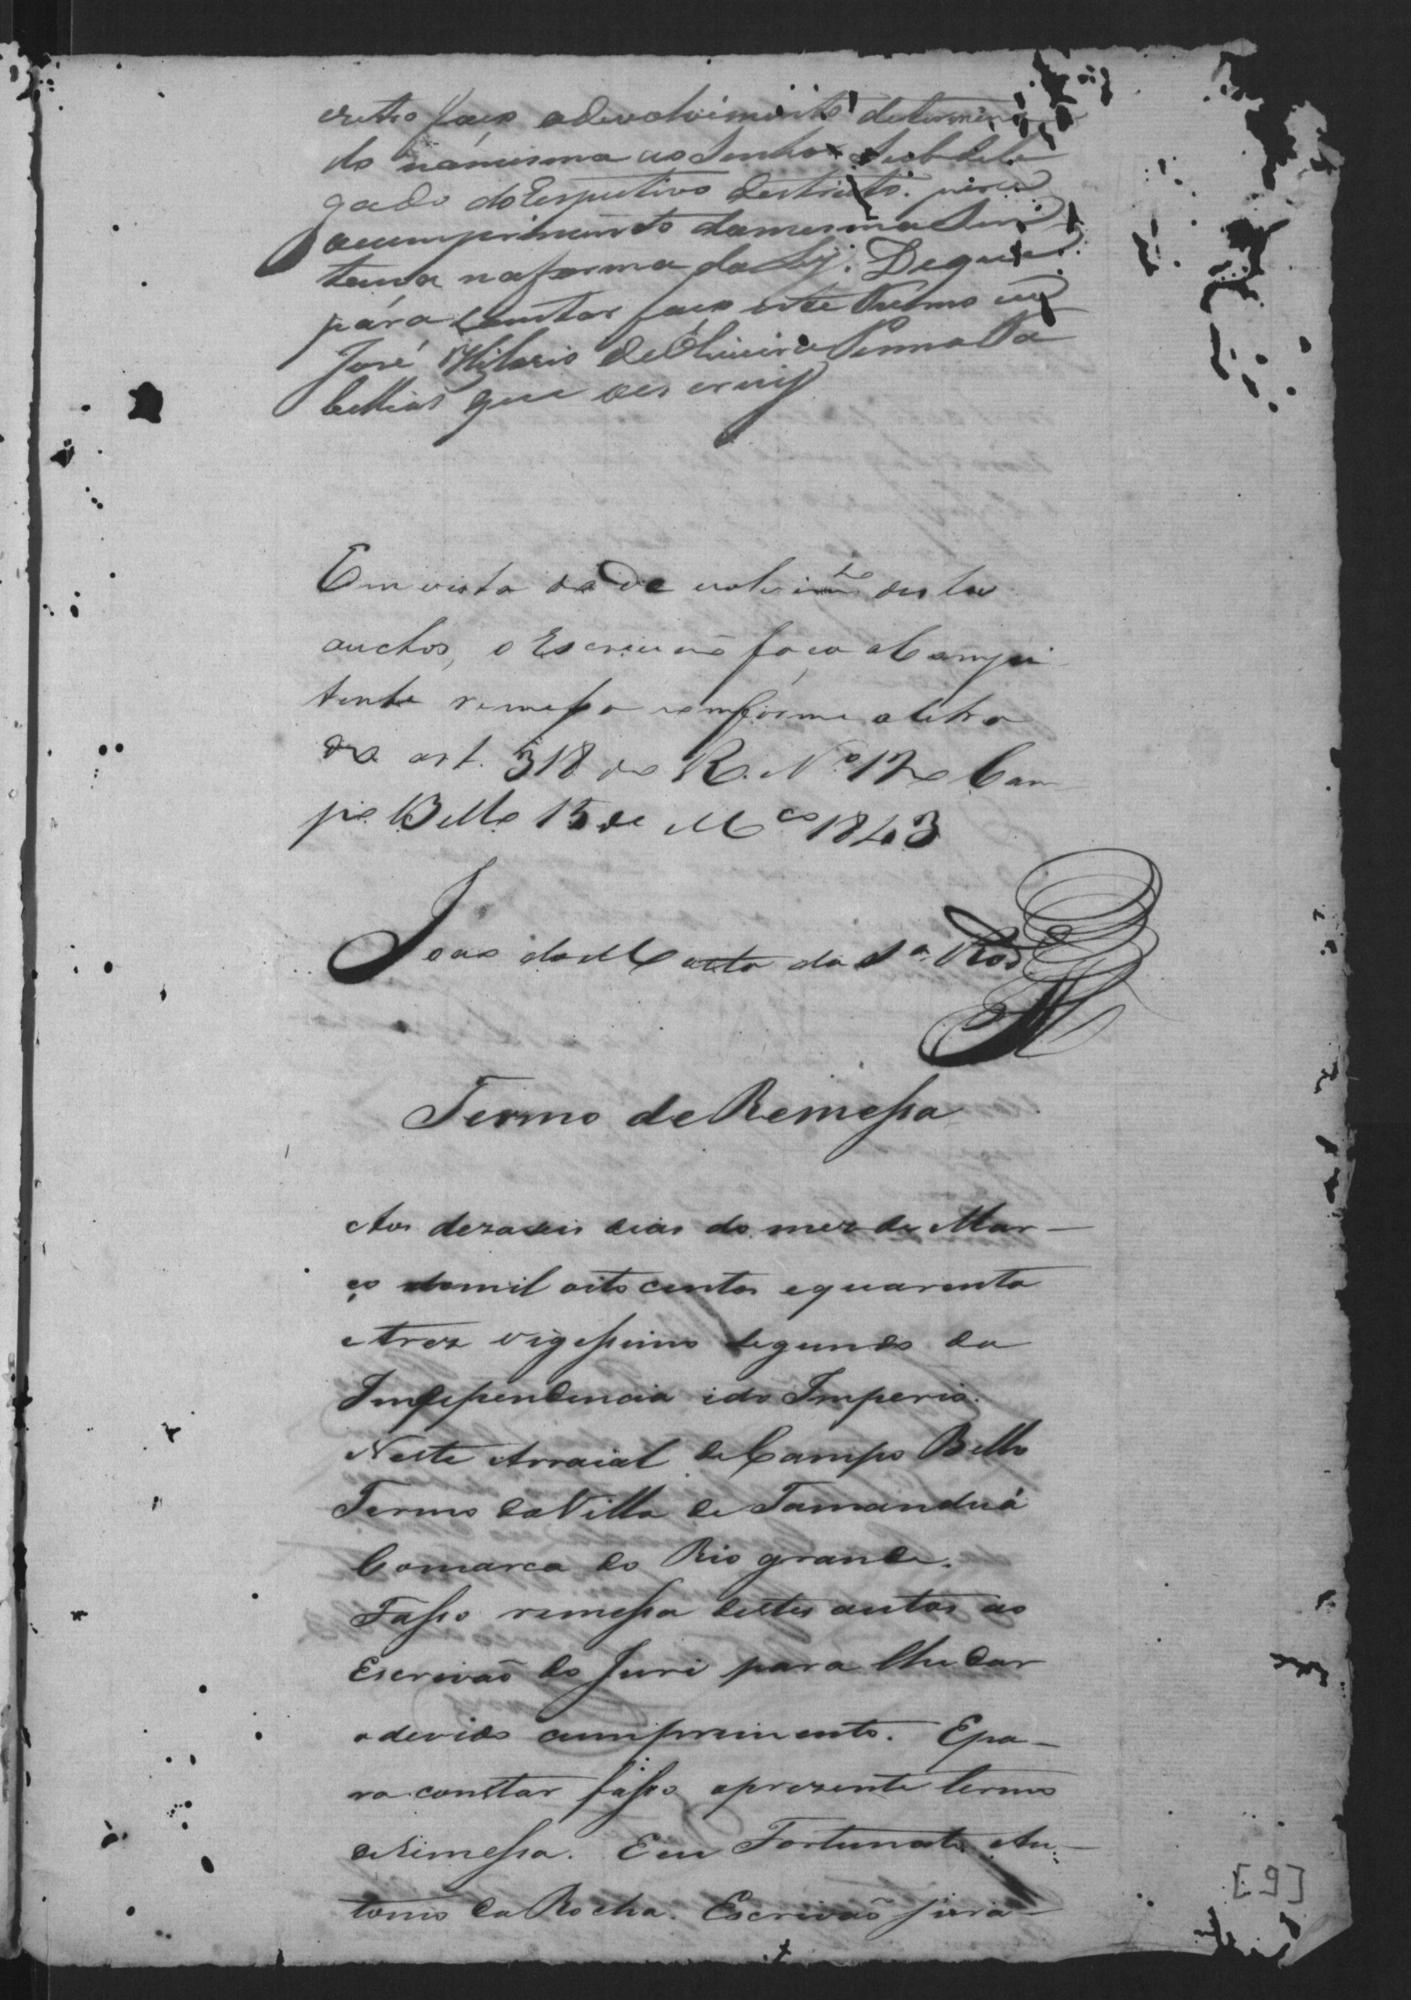 faço o devolvimento determina
do namesma ao Senhor Subdele
gado do Respectivo Destricto. para
ocumprimento damesma Sen
tença naforma da Ley. Deque
pára Constar faço este Termo eu
José Hilario de Oliveira Penna Ta
bellião que oes crevy
Em vista do de volvim.to destes
auctos, o Escrivão faça a Compi
tente remessa comforme a letra
do art. 318 do R. N.º 120 Cam
po Bello 15 de M.ço 1843
João da Matta da S.ª Roz
Termo de Remessa
Aos dezaseis dias do mez de Mar-
ço demil oito centos equarenta
etrez vigessimo segundo da
Independencia edo Imperio.
Neste Arraial de Campo Bello
Termo da Villa de Tamanduá
Comarca do Rio grande.
Fasso remessa destes autos ao
Escrivaõ do Juri para lhe dar
odevido cumprimento. Epa-
ra constar fasso oprezente termo
deRimessa. Eeu Fortunato An-
tonio da Rocha. Escrivaõ jura-
[9]